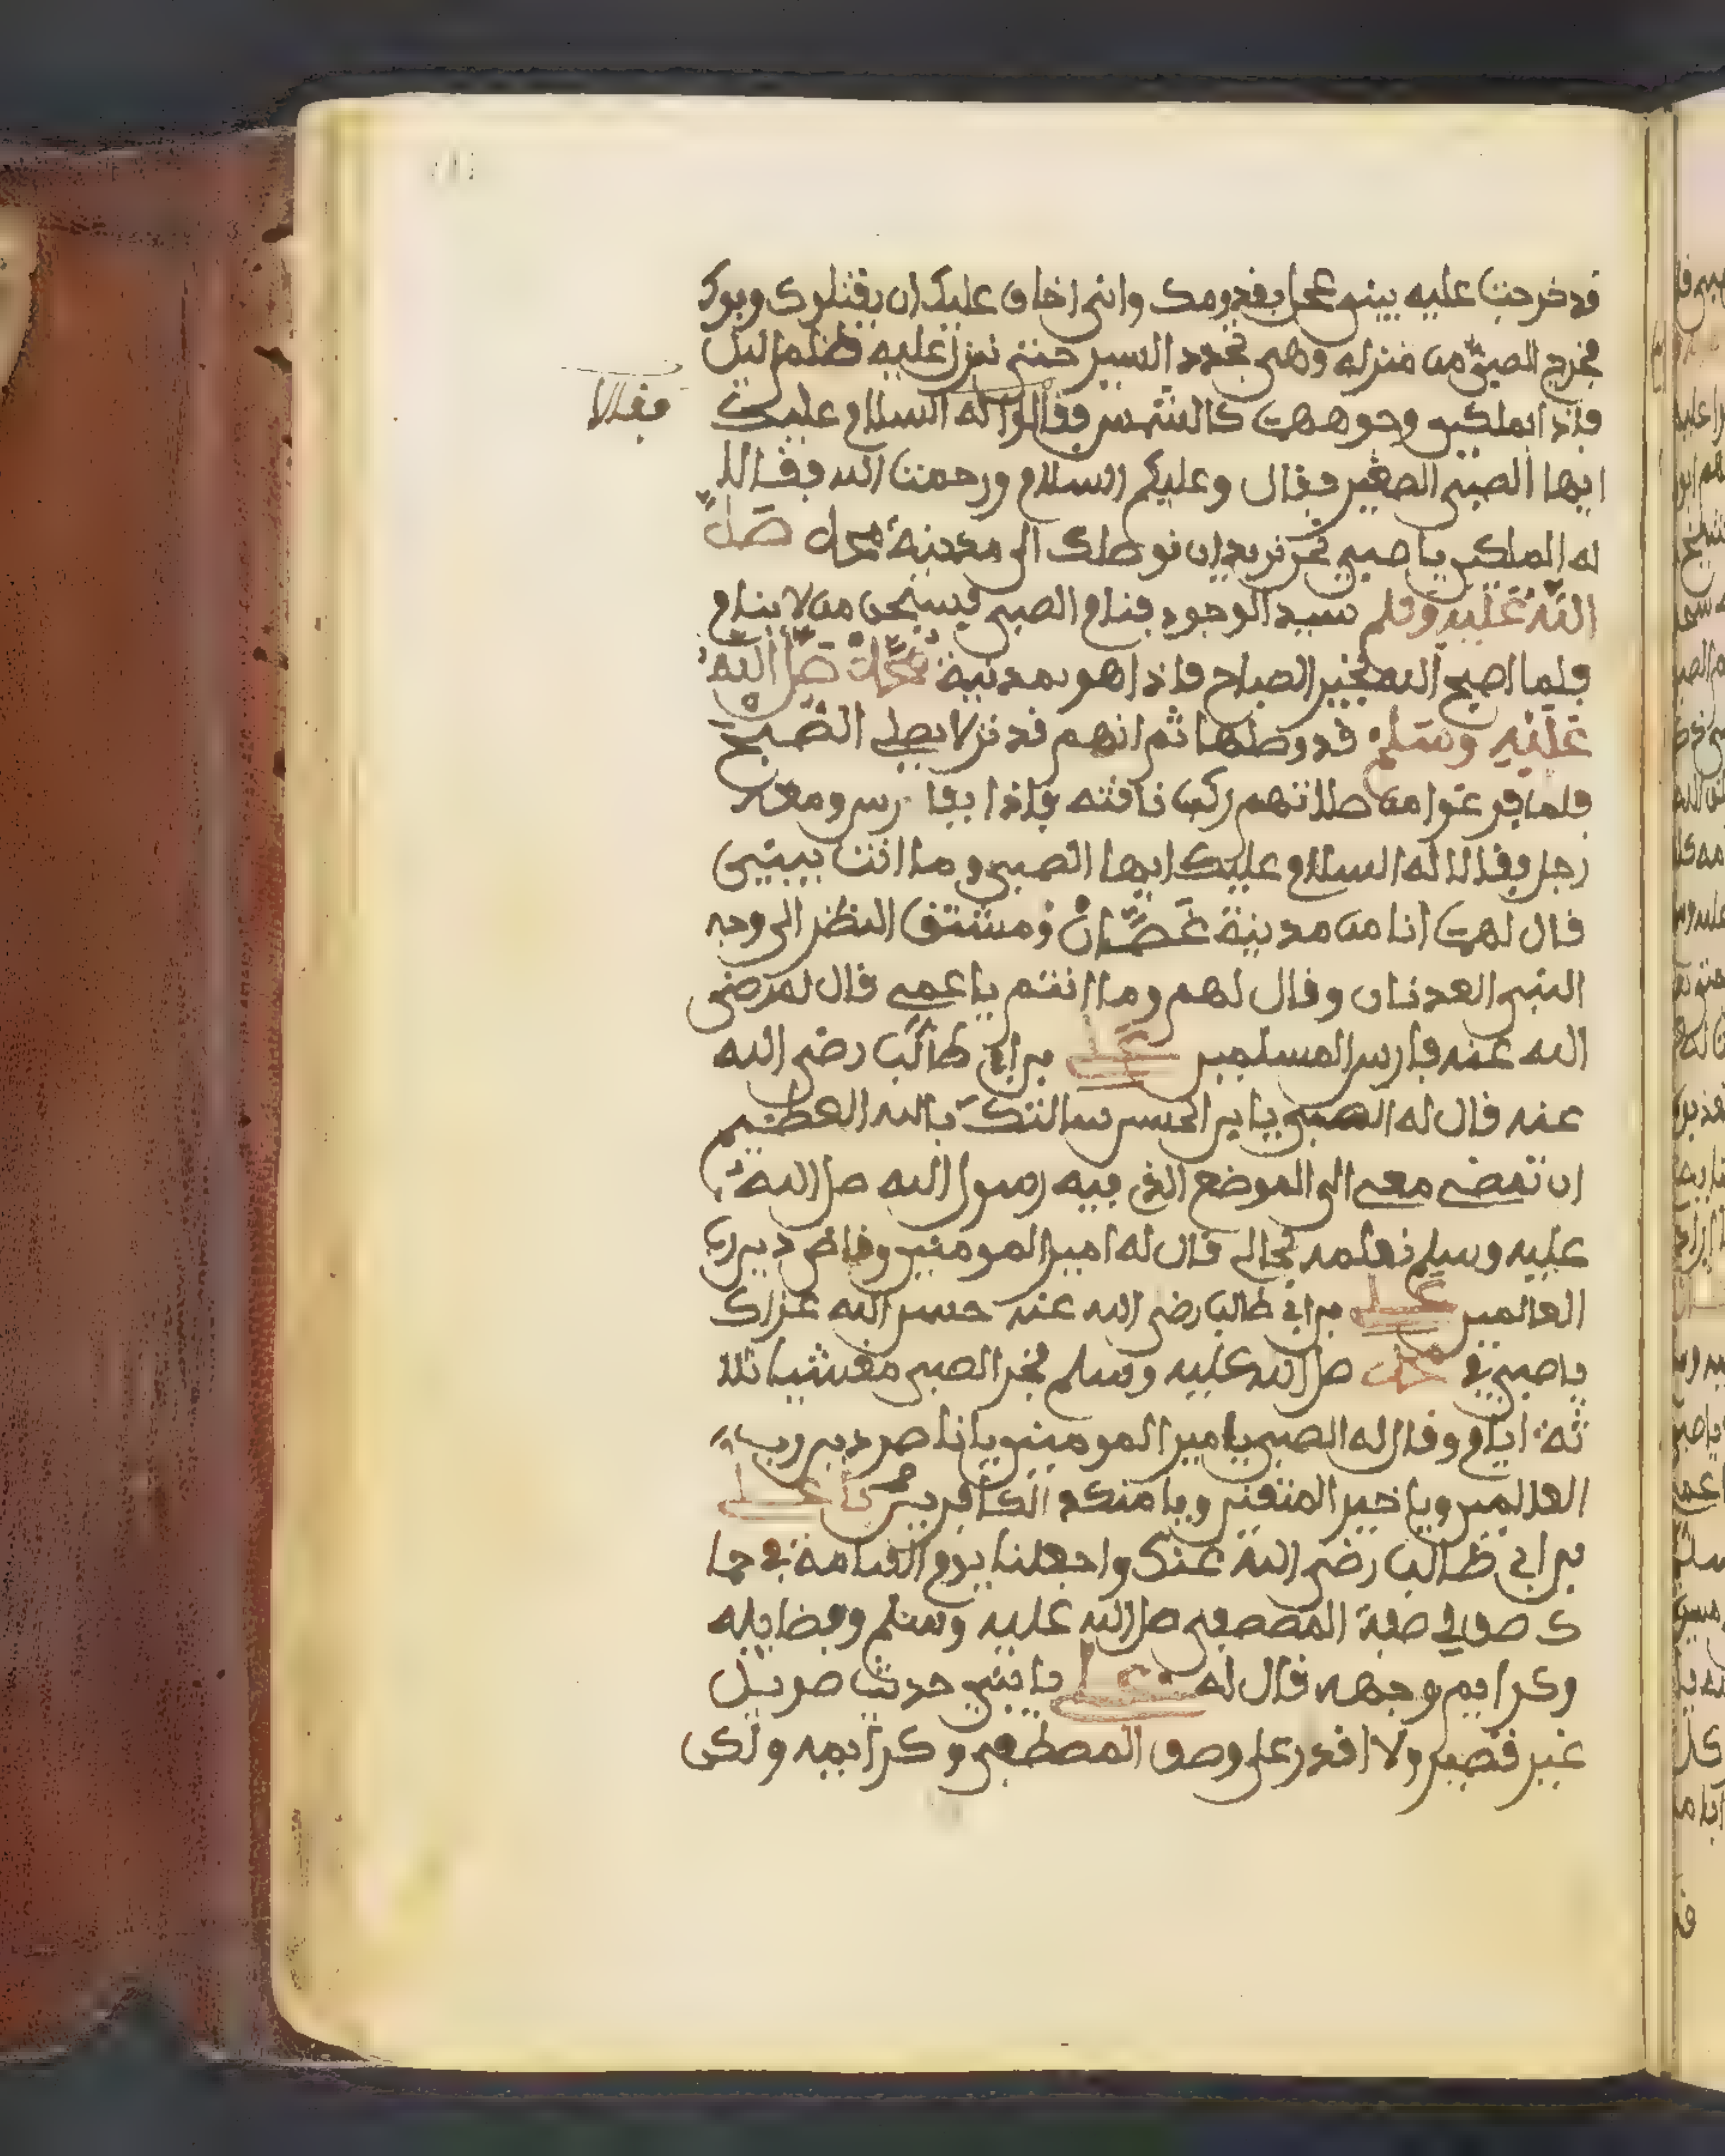 قد خرجت عليه بينه بقدومك وانى اخاف عليك ان يقتلوك
فخرج الصبى من منزله وهى تجدد السير حتى نزل عليه ظلم اليل
فاذا بملكين وجوههن كالشمس فقالوا له السلام عليك
فقالا
ايها الصبى الصغير فقال وعليكم السلام ورحمت الله فقالا
له الملكين يا صبى نحن نريد ان نوصلك الى مدينة محمد صلى
الله عليه وسلم سيد الوجود فنام الصبى فسبحن من لا ينام
فلما اصبح الله بخير الصباح فاذا هو بمدينة محمد صلى الله
عليه وسلم قد وصلها ثم انهم قد نزلا يصلى الصبح
فلما فرغوا من صلاتهم ركب نافته فاذا بفارس ومعه
رجل وفالا له السلام عليك ايها الصبى وما انت ببيتى
فال لهن انا من مدينة غصان ومشتق النظر الى وجه
النبى العدنان وفال لهم وما انتم يا عمى فال لهم رضى
الله عنه فارس المسلمين على بن ابى طالب رضى الله
عنه فال له الصبى يا بن الحسن سالتك بالله العظيم
ان تمضى معى الى الموضع الذى فيه رسول الله صلى الله
عليه وسلم نعلمه بحالى فال له امير المومنين وفاض دين رب
العالمين على بن ابى طالب رضى الله عنه حسن الله عزاك
يا صبى فى محمد صلى الله عليه وسلم فخر الصبى مغشيا ثلا
ثة ايام وفال له الصبى يامير المومنين يا ناصر دين رب
العالمين ويا خير المتفين ويا منكد الكافرين يا على
بن ابى طالب رضى الله عنك واجعلنا يوم القيامة فى حما
ك صف لى صفة المصطفى صلى الله عليه وسلم وفضايله
وكرايم وجهه فال له على يا بنى حدث طويل
غير قصير ولا افدر على وصف المصطفى وكرايمه ولكن